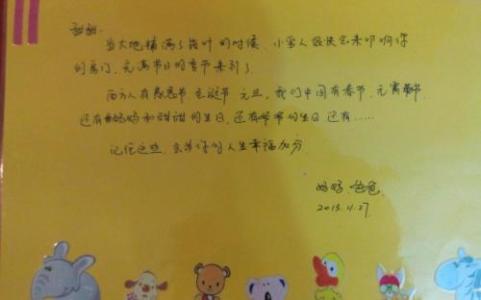 甜甜:
当大地铺满了落叶的时候,小雪人很快会来叩响你
的房门,充满节日的季节来到了
西方人有感恩节 圣诞节 元旦,我们中国有春节,元宵节
还有妈妈和甜甜的生日,还有爷爷的生日 还有……
记住这些,会让你的人生幸福加分
妈妈、爸爸
2013.11.27